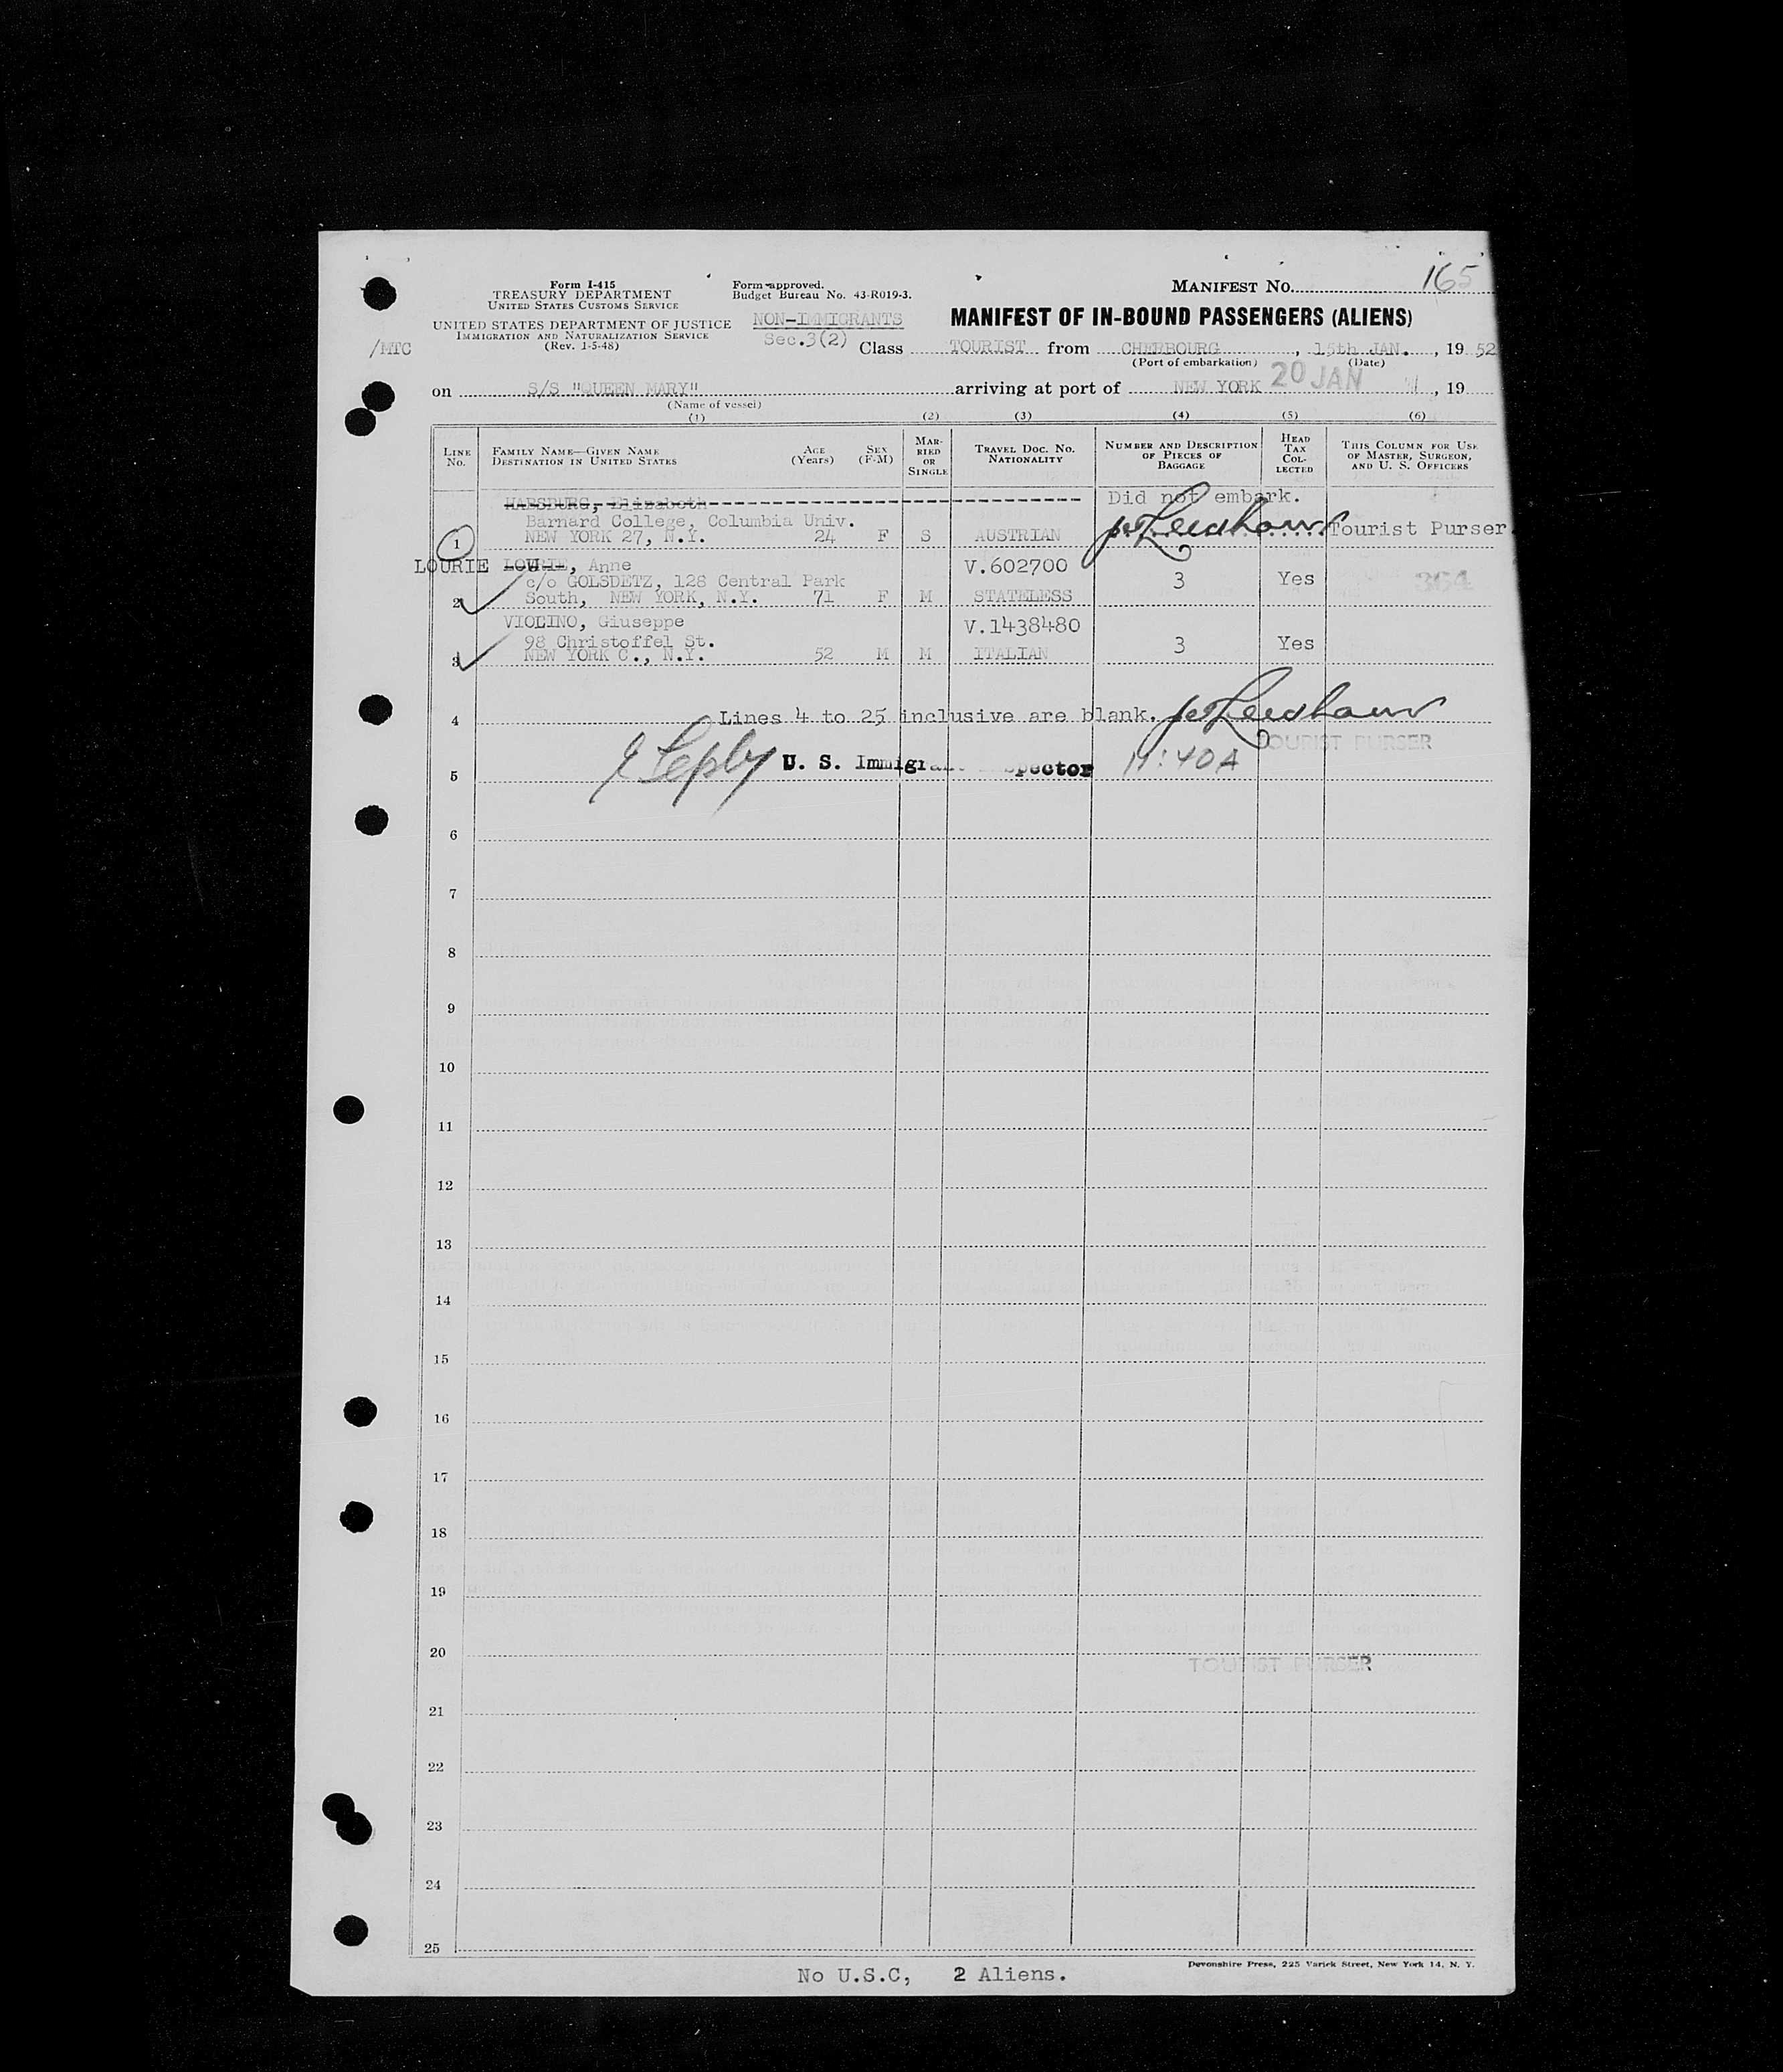 Form I-415
TREASURY DEPARTMENT
UNITED STATES CUSTOMS SERVICE
UNITED STATES DEPARTMENT OF JUSTICE
IMMIGRATION AND NATURALIZATION SERVICE
(Rev. 1-5-48)
/MTC
Form approved.
Budget Bureau No. 43-R019-3.
NON-IMMIGRANTS
Sec.3(2)
MANIFEST NO. 165
MANIFEST OF IN-BOUND PASSENGERS (ALIENS)
Class TOURIST from CHERBOURG, 15th JAN., 19 52
(Port of embarkation) (Date)
on S/S "QUEEN MARY" arriving at port of NEW YORK 20 JAN, 19
(Name of vessel)
(1) (2) (3) (4) (5) (6)
LINE No. FAMILY NAME—GIVEN NAME DESTINATION IN UNITED STATES AGE (Years) SEX (F-M) MARRIED OR SINGLE TRAVEL DOC. NO. NATIONALITY NUMBER AND DESCRIPTION OF PIECES OF BAGGAGE HEAD TAX COLLECTED THIS COLUMN FOR USE OF MASTER, SURGEON, AND U. S. OFFICERS
HABSBURG, Elizabeth Did not embark.
Barnard College, Columbia Univ. Tourist Purser.
1 NEW YORK 27, N.Y. 24 F S AUSTRIAN
LOURIE, Anne V.602700
c/o GOLSDETZ, 128 Central Park 3 Yes 364
2 South, NEW YORK, N.Y. 71 F M STATELESS
VIOLINO, Giuseppe V.1438480
98 Christoffel St. 3 Yes
3 NEW YORK C., N.Y. 52 M M ITALIAN
4 Lines 4 to 25 inclusive are blank.
TOURIST PURSER
5 U. S. Immigrant Inspector 11:40A
6
7
8
9
10
11
12
13
14
15
16
17
18
19
20
TOURIST PURSER
21
22
23
24
25
Devonshire Press, 225 Varick Street, New York 14, N. Y.
No U.S.C, 2 Aliens.